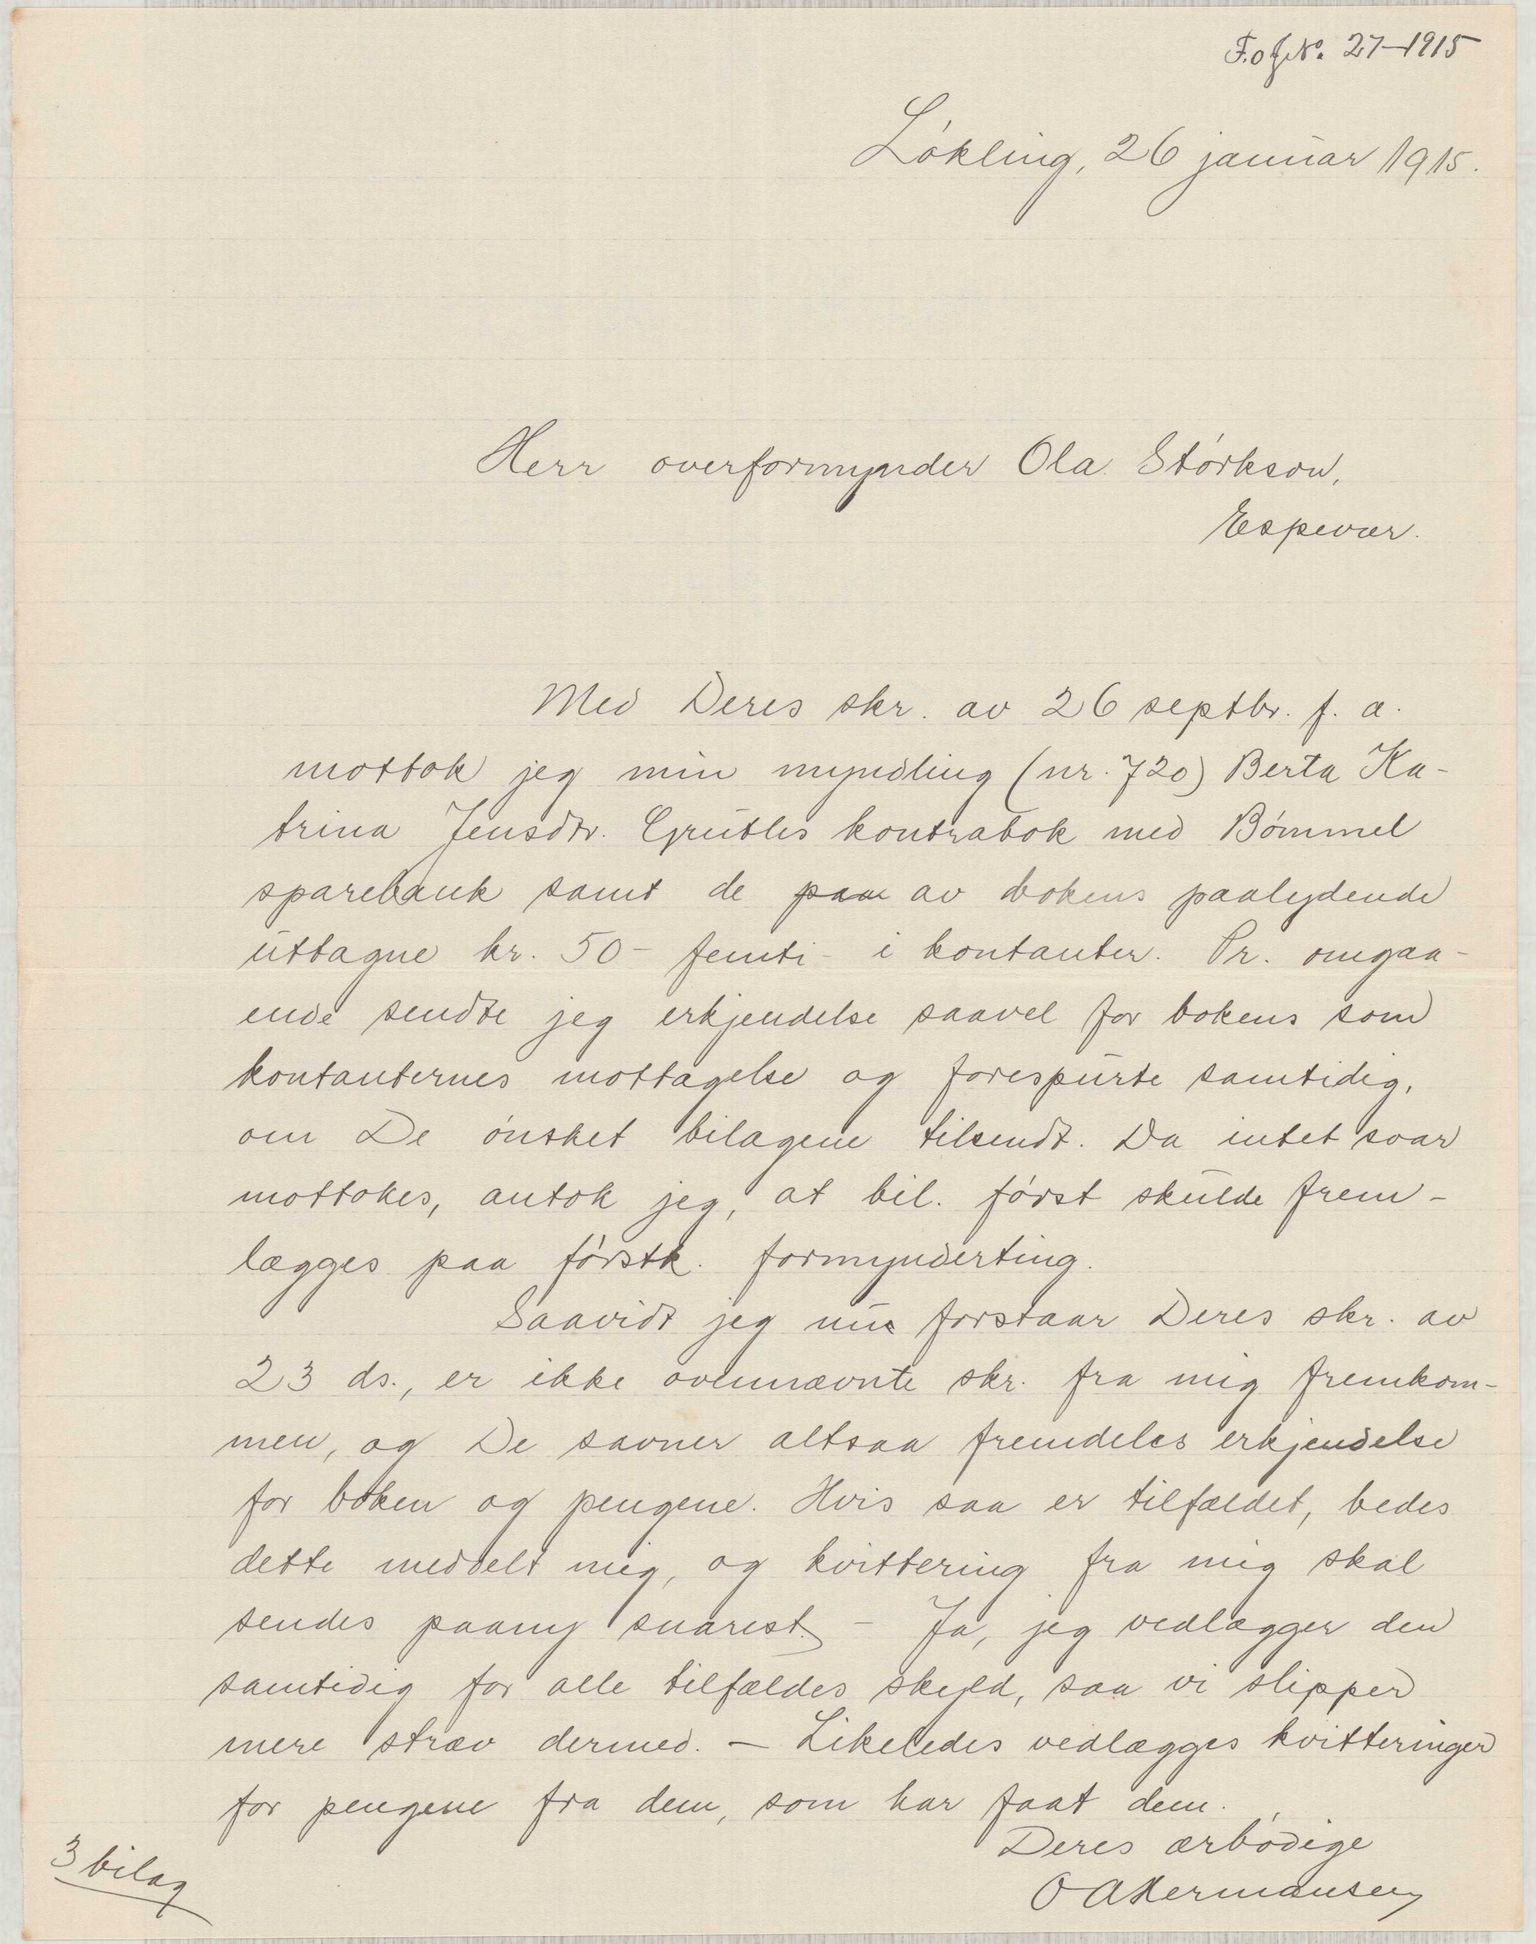 F. o f № 27-1915
Løkling, 26 januar 1915.
Herr overformynder Ola Størkson,
Espevær.
Med Deres skr. av 26 septbr. f. a.
mottok jeg min myndling (nr. 720) Berta Ka-
trina Jensdtr. Grutles kontrabok med Bømmel
sparebank samt de paa av bokens paalydende
uttagne kr. 50 - femti - i kontanter. Pr. omgaa-
ende sendte jeg erkjendelse saavel for bokens som
kontanternes mottagelse og forespurte samtidig,
om De ønsket bilagene tilsendt. Da intet svar
mottokes, antok jeg, at bil. først skulde frem-
lægges paa førstk. formynderting.
Saavidt jeg nu forstaar Deres skr. av
23 ds., er ikke ovennævnte skr. fra mig fremkom-
men, og De savner altsaa fremdeles erkjendelse
for boken og pengene. Hvis saa er tilfældet, bedes
dette meddelt mig, og kvittering fra mig skal
sendes paany snarest. - Ja, jeg vedlægger den
samtidig for alle tilfældes skyld, saa vi slipper
mere stræv dermed. - Likeledes vedlægges kvitteringer
for pengene fra dem, som har faat dem.
Deres ærbødige
O A Hermansen
3 bilag